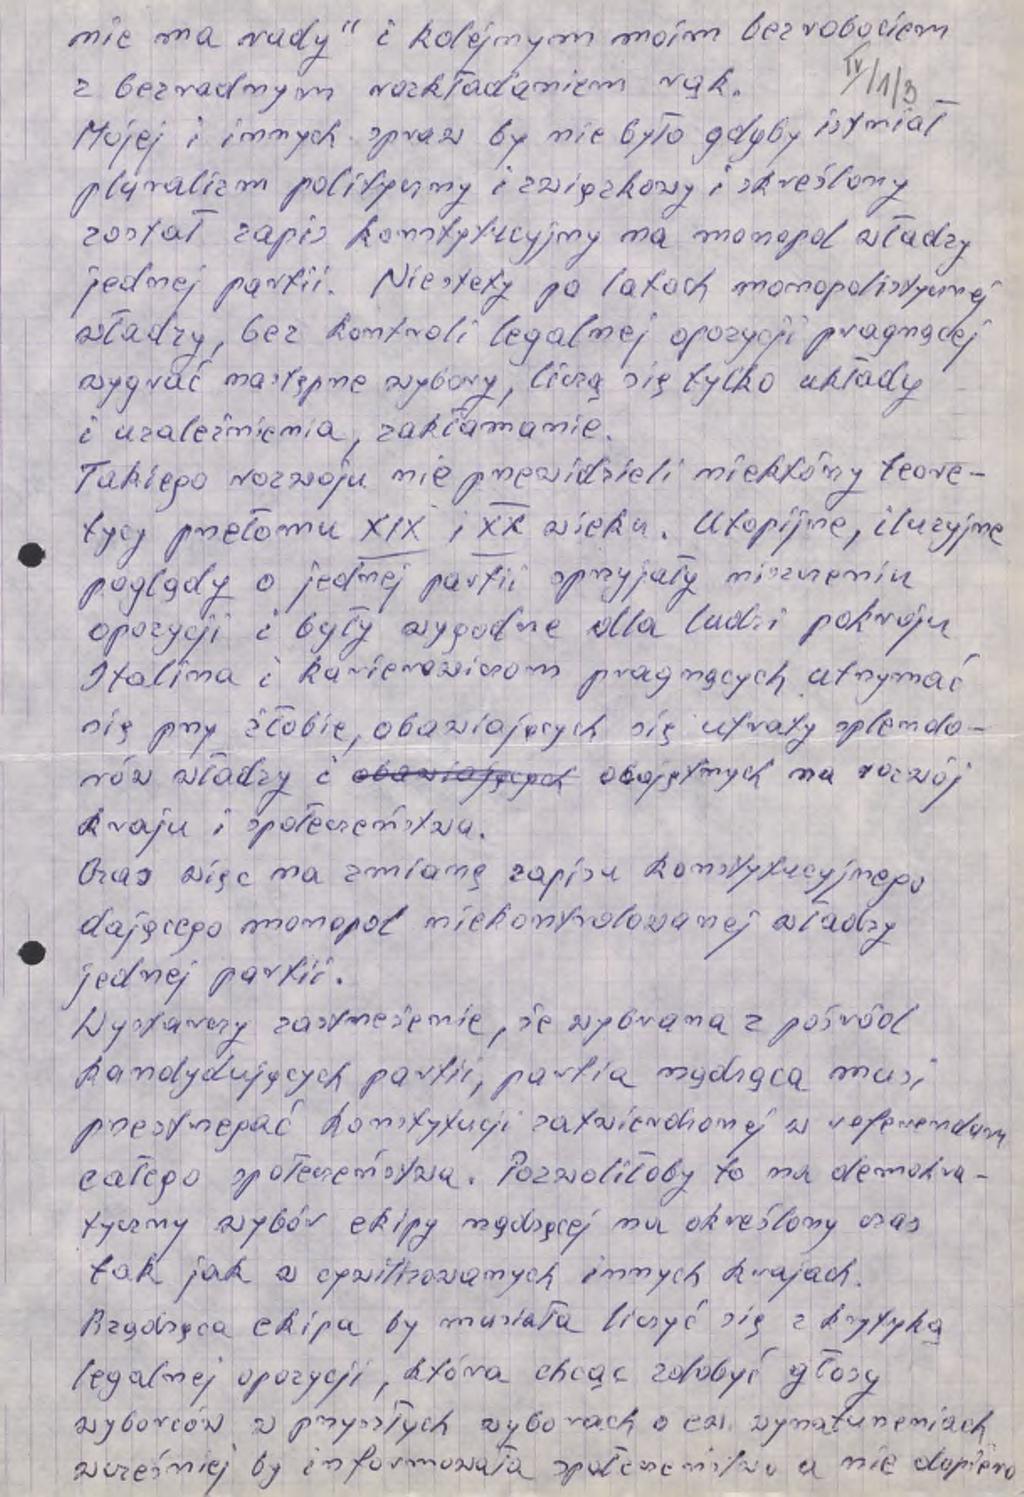 nie ma rady" i kolejnym moim bezrobociem
z bezradnym rozkładaniem rąk.
IV/1/3
Mojej i innych spraw by nie było gdyby istniał
pluralizm polityczny i związkowy i skreślony
został zapis konstytucyjny na monopol władzy
jednej partii. Niestety po latach monopolistycznej
władzy, bez kontroli legalnej opozycji pragnącej
wygrać następne wybory, liczą się tylko układy
i uzależnienia, zakłamanie.
Takiego rozwoju nie przewidzieli niektórzy teore-
tycy przełomu XIX i XX wieku. Utopijne, iluzyjne
poglądy o jednej partii sprzyjały niszczeniu
opozycji i były wygodne dla ludzi pokroju
Stalina i karierowiczom pragnących utrzymać
się przy żłobie, obawiających się utraty splendo-
rów władzy i obawiających obojętnych na rozwój
kraju i społeczeństwa.
Czas więc na zmianę zapisu konstytucyjnego
dającego monopol niekontrolowanej władzy
jednej partii.
Wystarczy zastrzeżenie, że wybrana z pośród
kandydujących partii, partia rządząca musi
przestrzegać konstytucji zatwierdzonej w referendum
całego społeczeństwa. Pozwoliłoby to na demokra-
tyczny wybór ekipy rządzącej na określony czas
tak jak w cywilizowanych innych krajach.
Rządząca ekipa by musiała liczyć się z krytyką
legalnej opozycji, która chcąc zdobyć głosy
wyborców w przyszłych wyborach o ew. wynaturzeniach
wcześniej by informowała społeczeństwo a nie dopiero